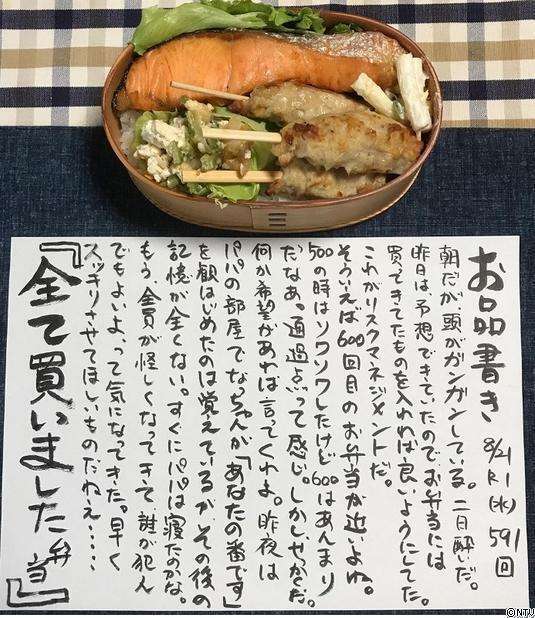 お品書き
8/21 R1(水) 591回
朝だが頭がガンガンしている。二日酔いだ。
昨日は予想できていたのでお弁当には
買ってきてたものを入れれば良いようにしてた。
これがリスクマネジメントだ。
そういえば600回目のお弁当が近いよね。
500の時はソワソワしたけど600はあんまり
だなあ。通過点って感じ。しかしせっかくだ。
何か希望があれば言ってくれよ。昨夜は
パパの部屋でなっちゃんが「あなたの番です」
を観はじめたのは覚えているが、その後の
記憶が全くない。すぐにパパは寝たのかな。
もう、全員が怪しくなってきて、誰が犯人
でもよいよ、って気になってきた。早く
スッキリさせてほしいものだねえ・・・・
『全て買いました弁当』
©NTJ